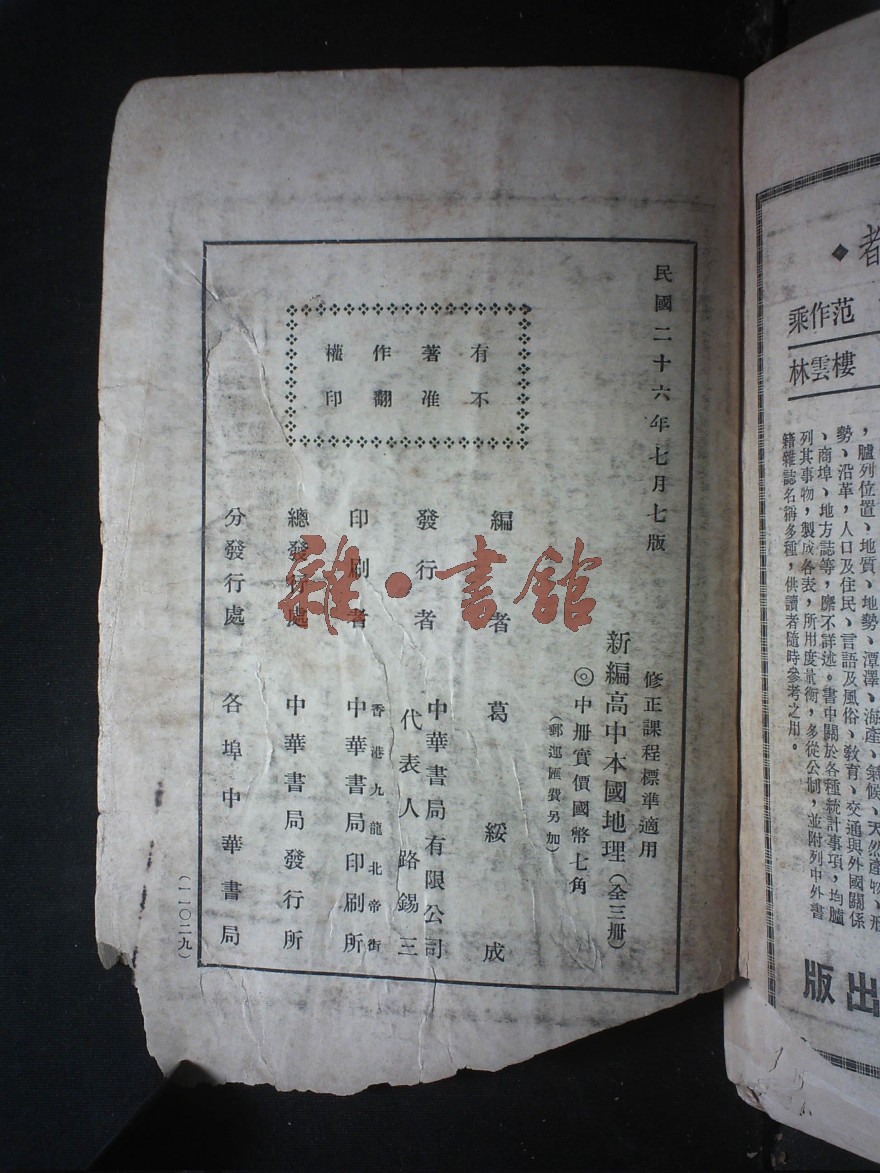 民國二十六年七月七版
有著作權
不准翻印
修正課程標準適用
新編高中本國地理(全三册)
◎中册實價國幣七角
(郵運匯費另加)
編者 葛綏成
發行者 中華書局有限公司
代表人路錫三
印刷者 香港九龍北帝街
中華書局印刷所
總發行處 中華書局發行所
分發行處 各埠中華書局
(一一〇二九)
雜·書館
都
◆
范作乘
樓雲林
,臚列位置、地質、地勢、潭澤、海產、氣候、天然產物、形
勢、沿革,人口及住民、言語及風俗、敎育、交通與外國關係
、商埠、地方誌等,靡不詳述。書中關於各種統計事項,均臚
列其事物,製成各表,所用度量衡,多從公制,並附列中外書
籍雜誌名稱多種,供讀者隨時參考之用。
出版